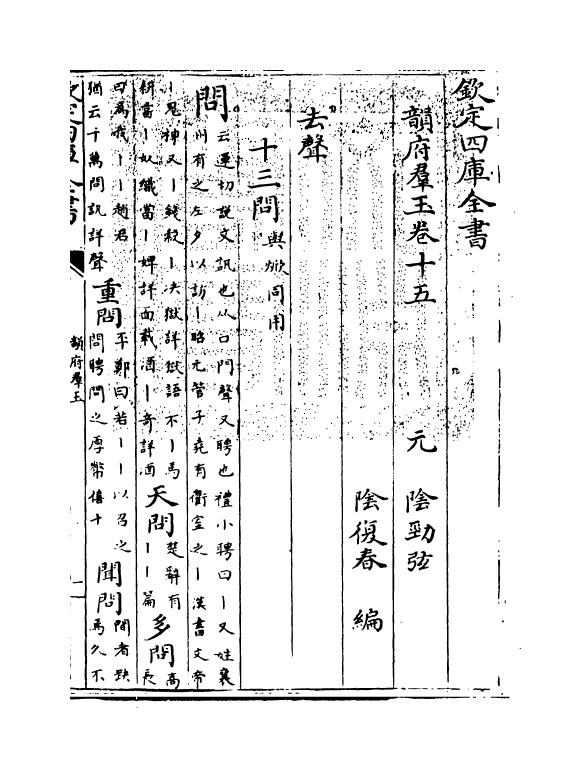 欽定四庫全書
韻府羣玉卷十五
元 陰勁弦
陰復春 編
去聲
十三問與焮同用
問云運切說文訊也从口門聲又聘也禮小聘曰丨又姓襄
州有之左夕以訪丨昭元管子堯有衢室之丨漢書文帝
丨鬼神又丨錢穀丨決獄詳獄語不丨馬
耕當丨奴織當丨婢詳面載酒丨奇詳酒
天問楚辭有
丨丨篇
多問高
長
曰為我丨丨趙君
猶云千萬問訊詳聲
重問平鄭曰若丨丨以召之
問聘問之厚幣僖十
聞問間者缺
焉久不
韻府羣玉